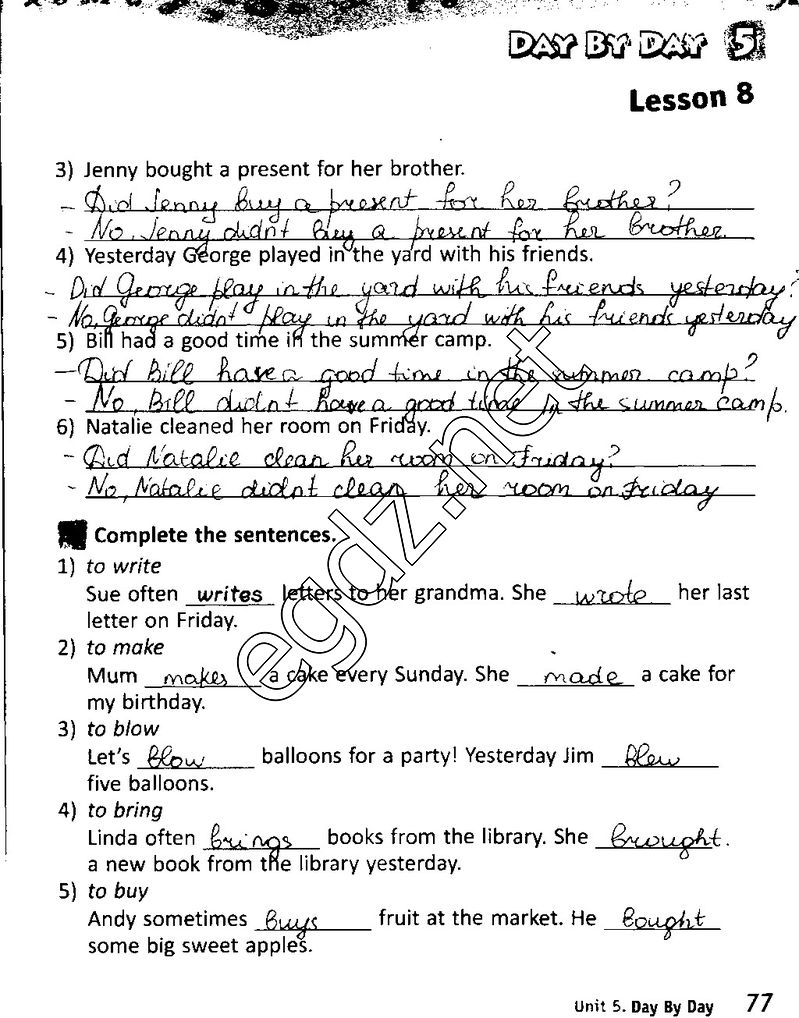 DAY BY DAY 5
Lesson 8
3) Jenny bought a present for her brother.
– Did Jenny buy a present for her brother?
– No, Jenny didn't buy a present for her brother.
4) Yesterday George played in the yard with his friends.
– Did George play in the yard with his friends yesterday?
– No, George didn't play in the yard with his friends yesterday
5) Bill had a good time in the summer camp.
– Did Bill have a good time in the summer camp?
– No, Bill didn't have a good time in the summer camp.
6) Natalie cleaned her room on Friday.
– Did Natalie clean her room on Friday?
– No, Natalie didn't clean her room on Friday
Complete the sentences.
1) to write
Sue often writes letters to her grandma. She wrote her last
letter on Friday.
2) to make
Mum makes a cake every Sunday. She made a cake for
my birthday.
3) to blow
Let's blow balloons for a party! Yesterday Jim blew
five balloons.
4) to bring
Linda often brings books from the library. She brought
a new book from the library yesterday.
5) to buy
Andy sometimes buys fruit at the market. He bought
some big sweet apples.
egdz.net
Unit 5. Day By Day 77